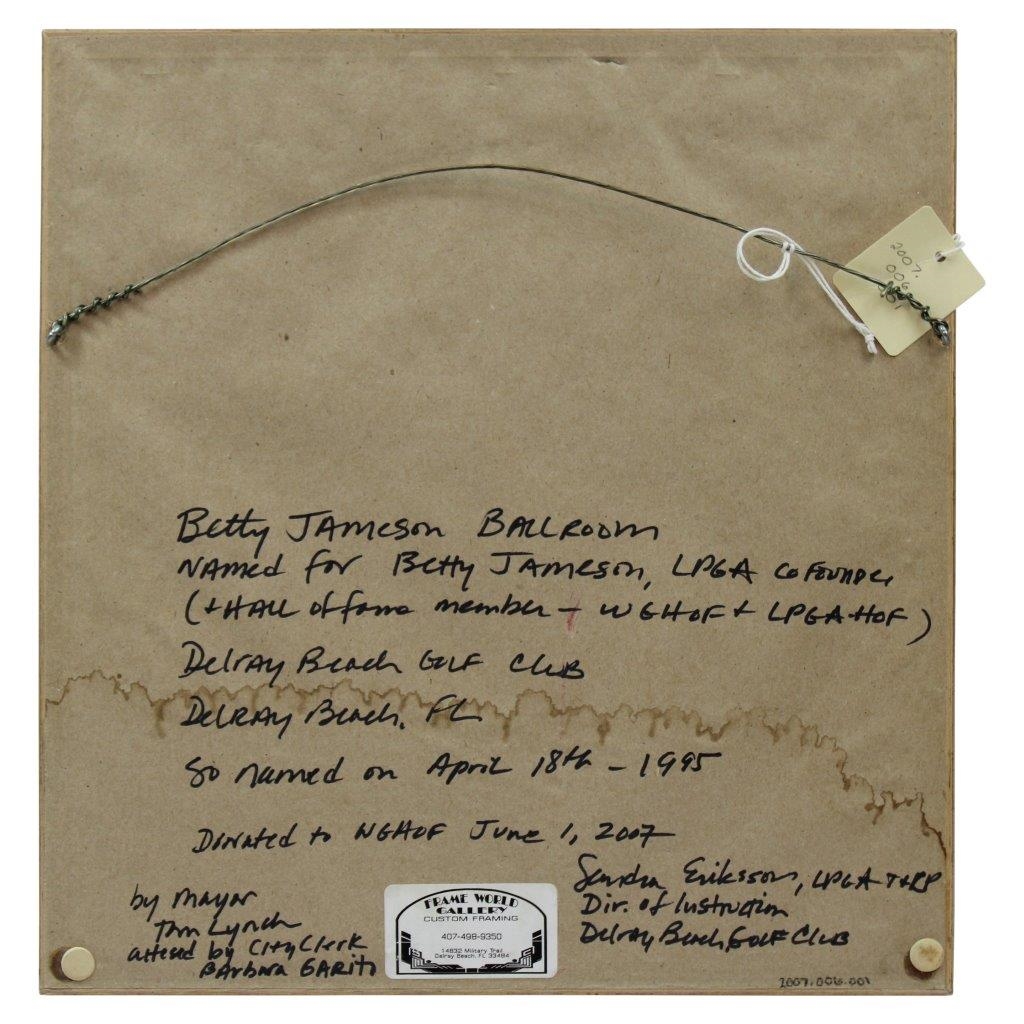 2007.
006
001
Betty JAMESON BALLROOM
NAMED for Betty JAMESON, LPGA CoFOUNDER
(+HALL of fame member - WGHOF + LPGA-HOF)
Delray Beach GOLF Club
DelRAY Beach, FL
So named on April 18th - 1995
Donated to WGHOF June 1, 2007
Sandra Eriksson, LPGA T+CP
Dir. of Instruction
Delray Beach GOLF Club
by Mayor
Tom Lynch
attesed by City Clerk
BArbara GARITO
FRAME WORLD
GALLERY
CUSTOM FRAMING
407-498-9350
14832 Military Trail
Delray Beach, FL 33484
2007.006.001